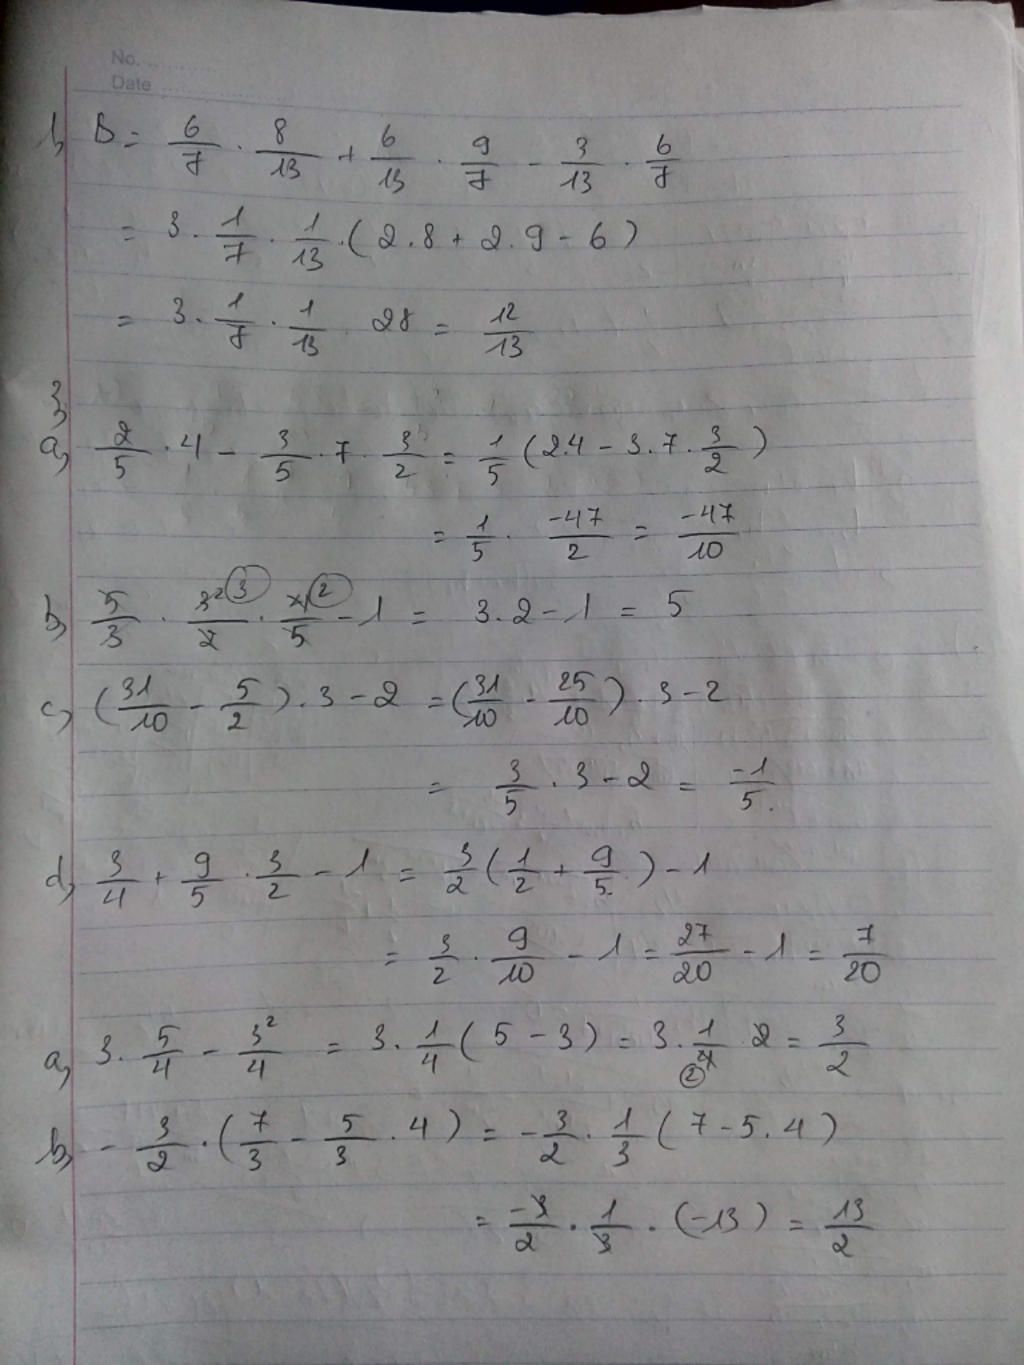 No.
Date
b, B = 6/7 . 8/13 + 6/13 . 9/7 - 3/13 . 6/7
= 3 . 1/7 . 1/13 . ( 2.8 + 2.9 - 6 )
= 3 . 1/7 . 1/13 . 28 = 12/13
3,
a, 2/5 . 4 - 3/5 . 7 . 3/2 = 1/5 ( 2.4 - 3.7 . 3/2 )
= 1/5 . -47/2 = -47/10
b, 5/3 . 3² ③/2 . 4 ②/5 - 1 = 3.2 - 1 = 5
c, ( 31/10 - 5/2 ) . 3 - 2 = ( 31/10 - 25/10 ) . 3 - 2
= 3/5 . 3 - 2 = -1/5 .
d, 3/4 + 9/5 . 3/2 - 1 = 3/2 ( 1/2 + 9/5 ) - 1
= 3/2 . 9/10 - 1 = 27/20 - 1 = 7/20
a, 3 . 5/4 - 3²/4 = 3 . 1/4 ( 5 - 3 ) = 3 . 1/4 ② . 2 = 3/2
b, - 3/2 . ( 7/3 - 5/3 . 4 ) = - 3/2 . 1/3 ( 7 - 5.4 )
= -3/2 . 1/3 . (-13) = 13/2